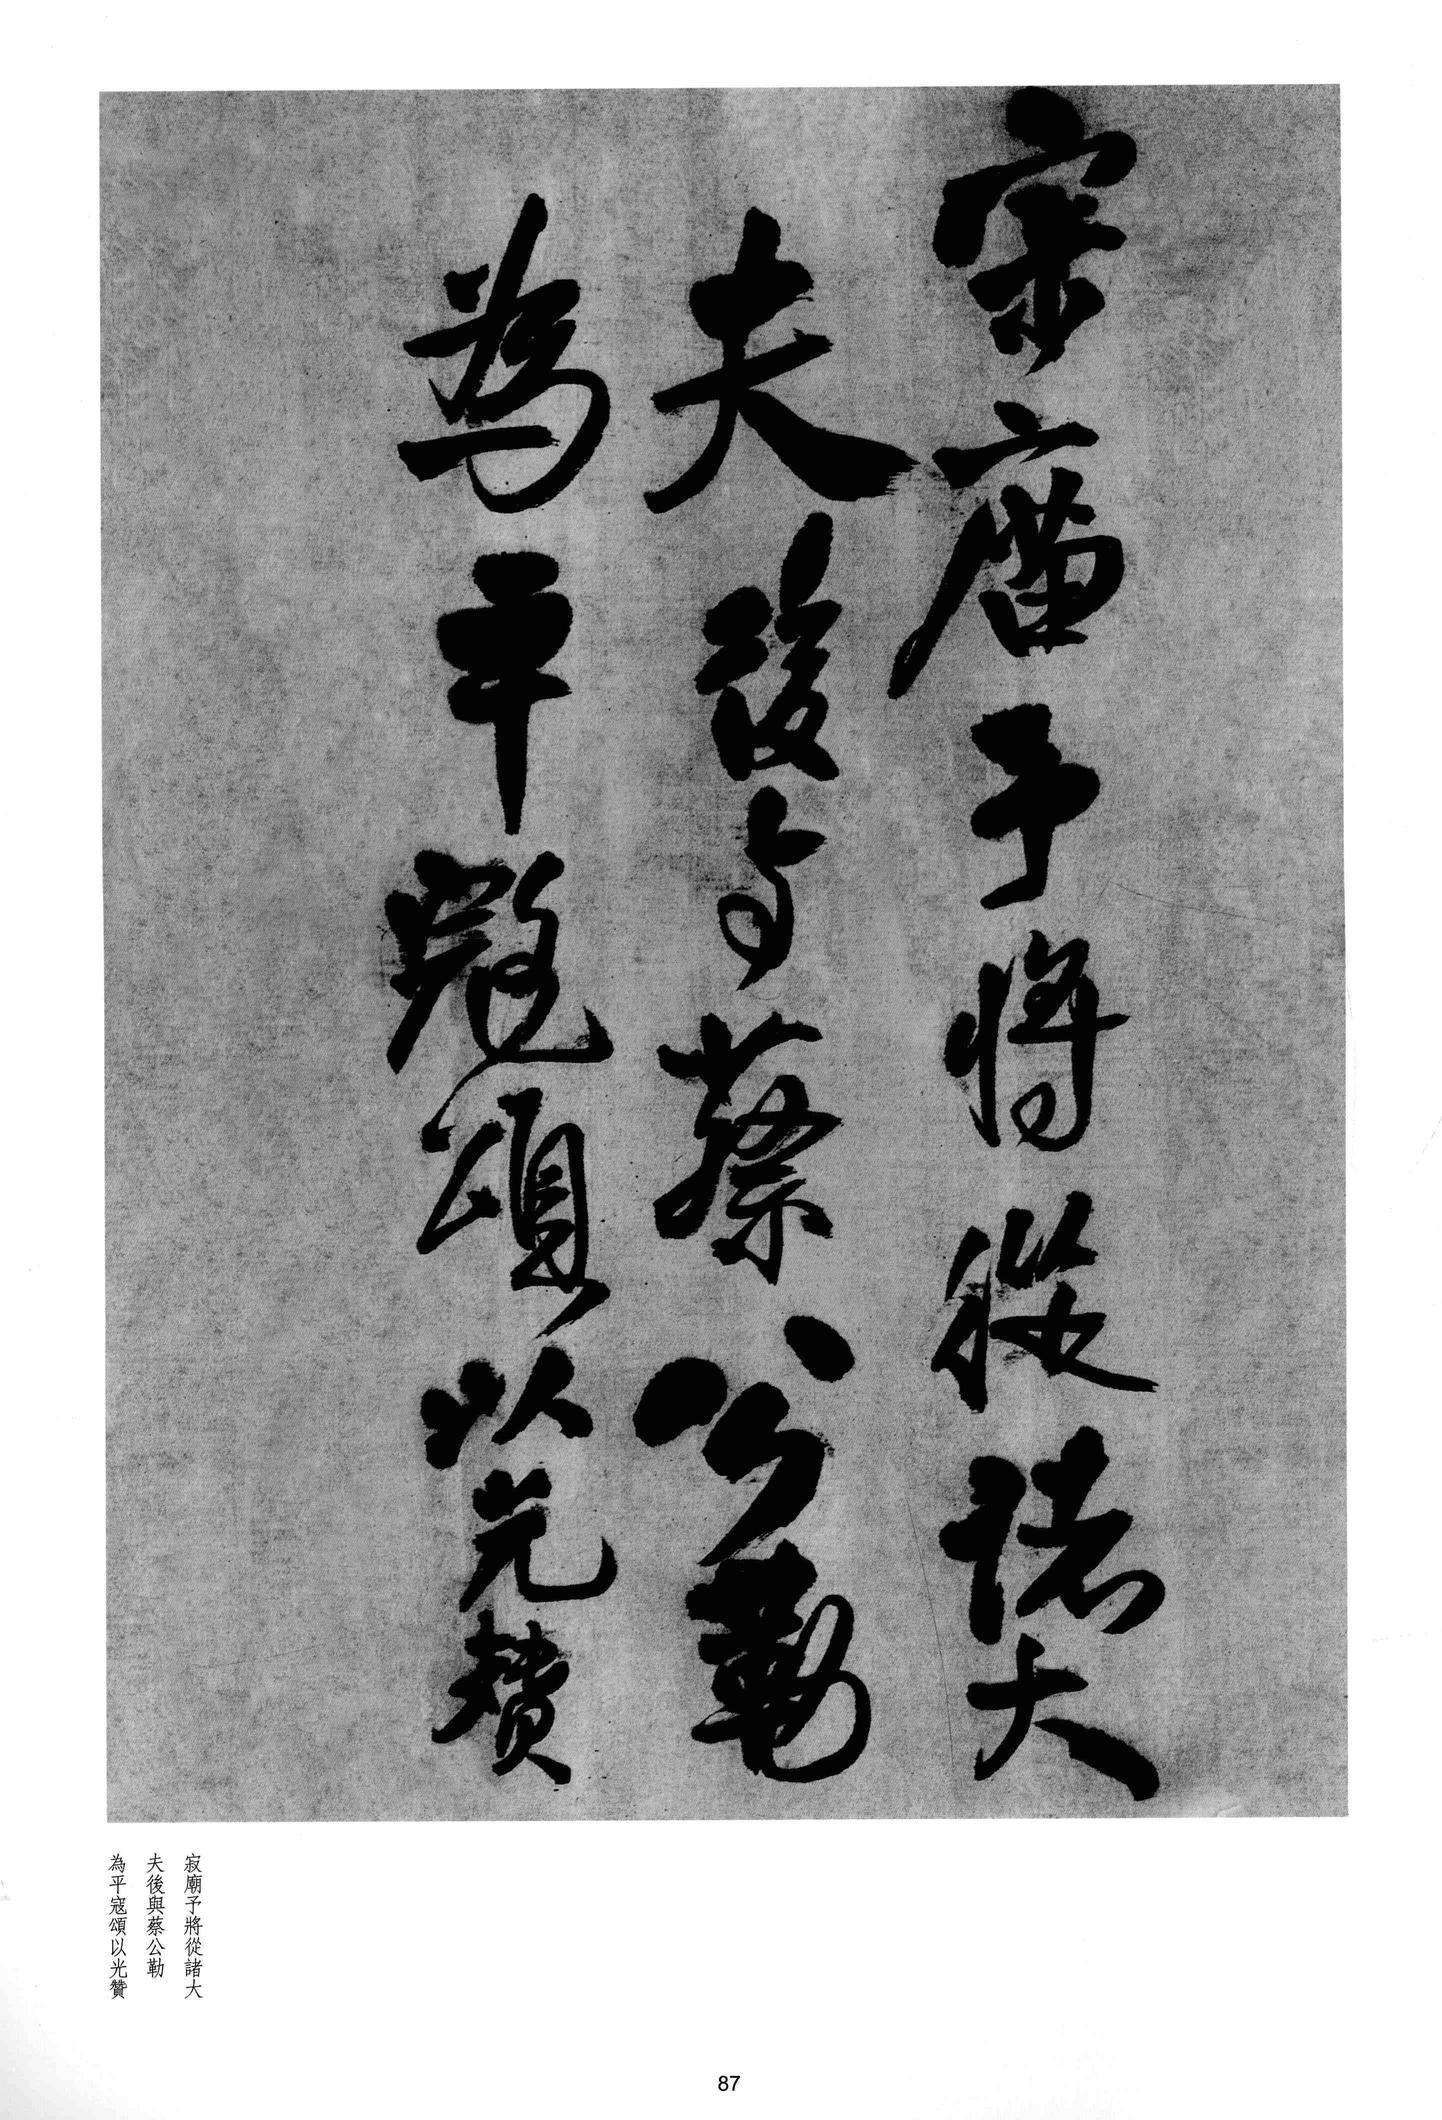 宗廟予將從諸大
夫後与蔡公勒
為平寇頌以光贊
寂廟予將從諸大
夫後與蔡公勒
為平寇頌以光贊
87